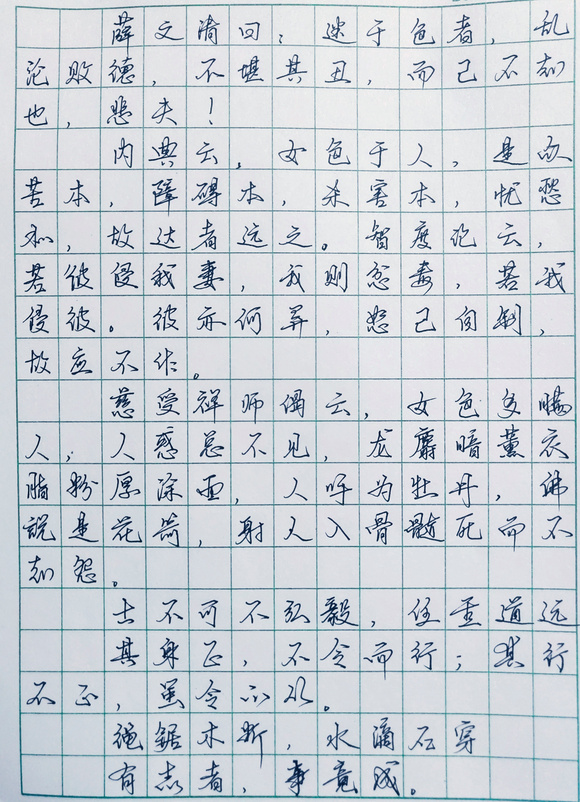 薛文清曰，迷于色者，乱
沦败德，不堪其丑，而己不知
也，悲夫！
内典云，女色于人，是众
苦本，障碍本，杀害本，忧愁
本，故达者远之。智度论云，
若彼侵我妻，我则忿毒，若我
侵彼。彼亦何异，恕己自制，
故应不作。
慈受禅师偈云，女色多瞒
人，人惑总不见，龙麝暗薰衣
脂粉厚涂面，人呼为牡丹，佛
说是花箭，射人入骨髓死而不
知怨。
士不可不弘毅，任重道远
其身正，不令而行；其行
不正，虽令不从。
绳锯木断，水滴石穿
有志者，事竟成。